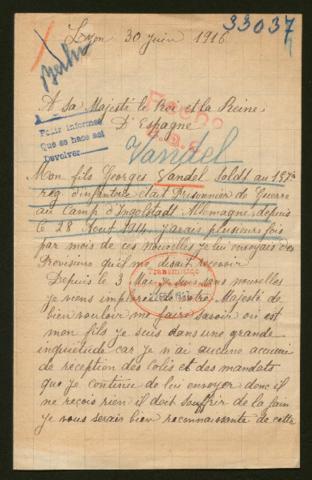 33037
Lyon 30 juin 1916
Berlin
A sa Majesté le Roi et la Reine
D'Espagne
Pedir informes
Que se hace así
Devolver
Vandel
Mon fils Georges Vandel Soldt au 157e
reg d'infanterie etait Prisonnier de Guerre
au Camp d'Ingolstadt Allemagne, depuis
le 28 Aout 1914 j'avais plusieurs fois
par mois de ces nouvelles je lui envoyais des
Provisions qu'il me disait recevoir
Depuis le 3 Mai je suis sans nouvelles
je viens implorer votre Majesté de
bien vouloir me faire savoir où est
mon fils je suis dans une grande
inquietude car je n'ai aucune accusé
de reception des Colis et des mandats
que je continue de lui envoyer donc il
ne reçois rien il doit souffrir de la faim
je vous serais bien reconnaissante de cette